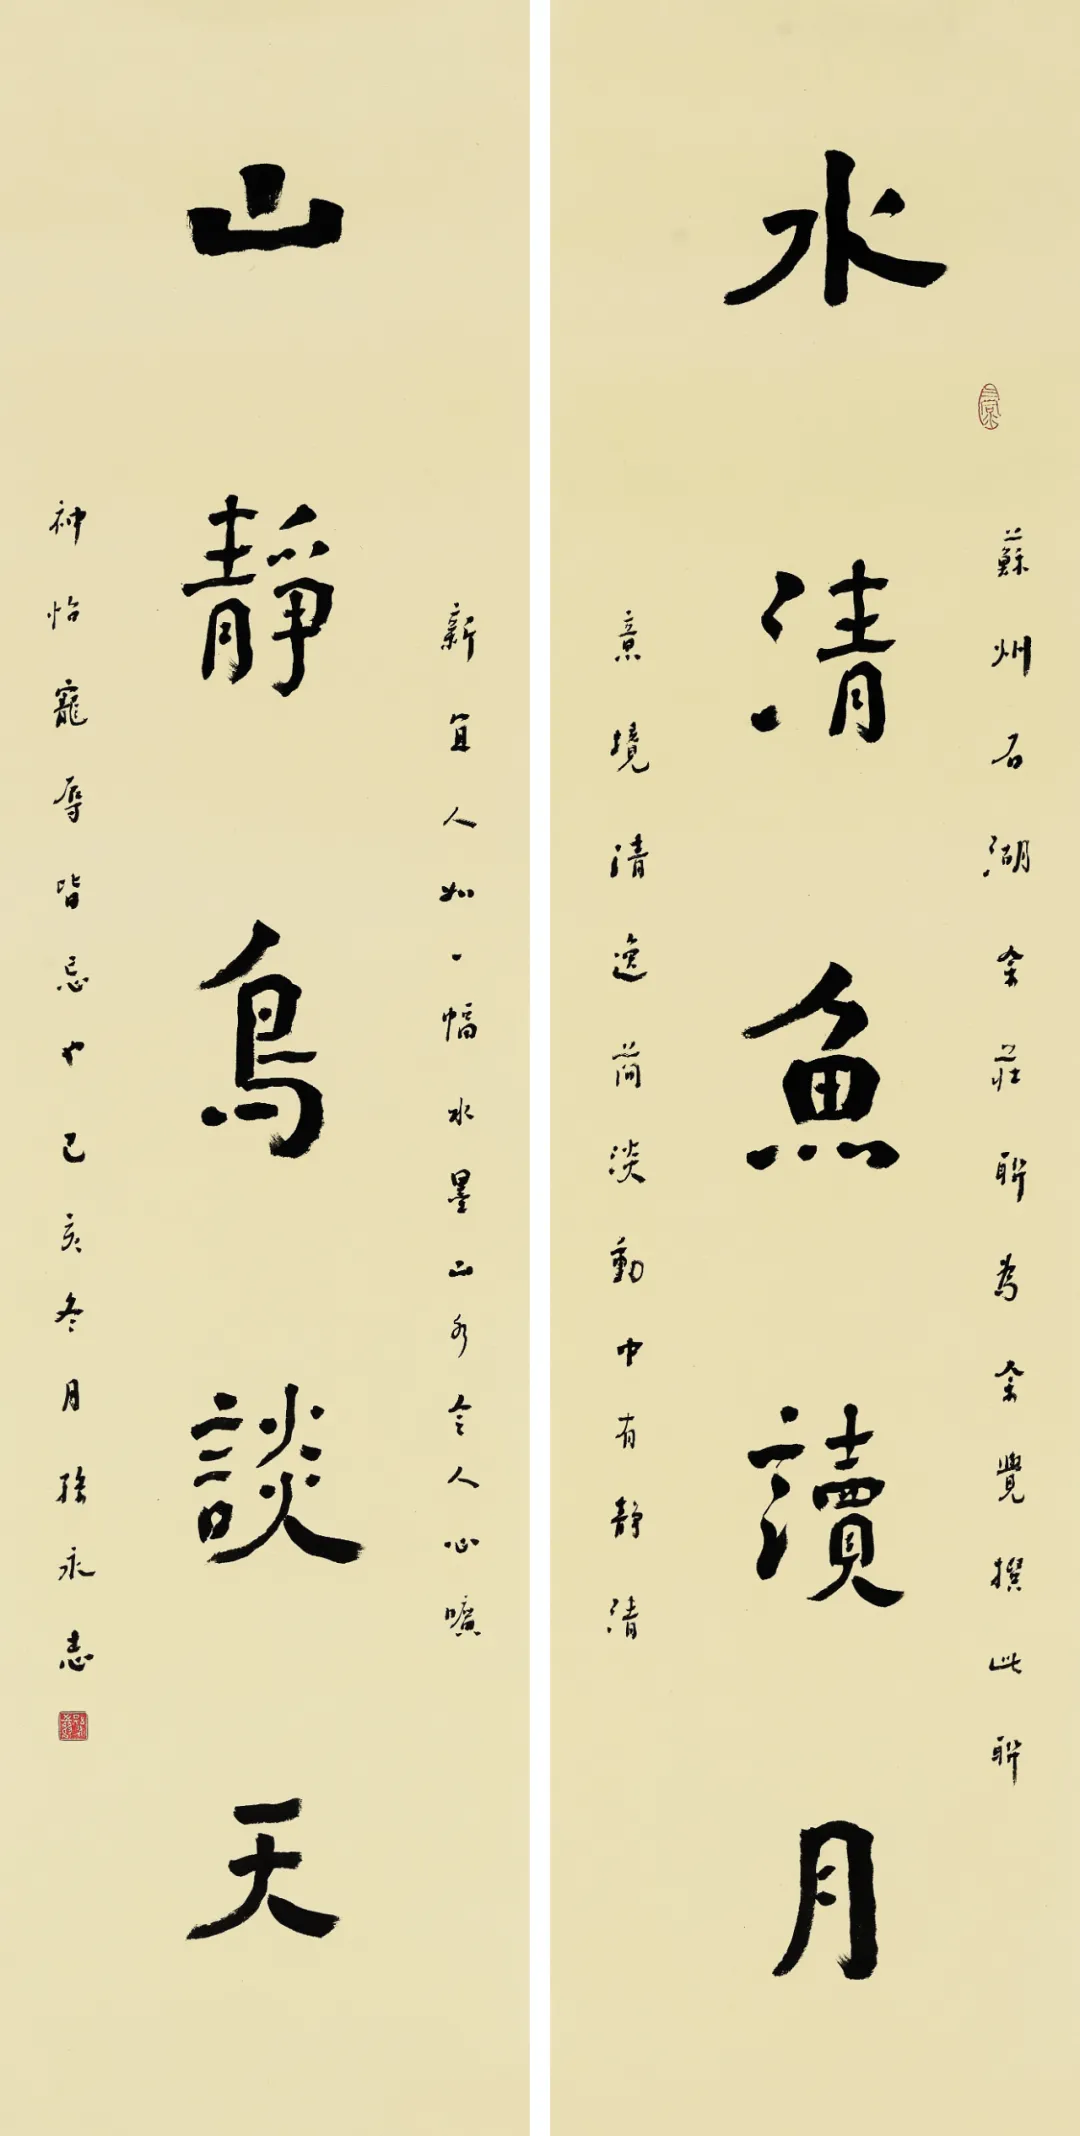 蘇州石湖余莊聯為余覺撰此聯
水清魚讀月
意境清逸簡淡動中有靜清
新宜人如一幅水墨山水令人心曠
山靜鳥談天
神怡寵辱皆忘也己亥冬月孫永志